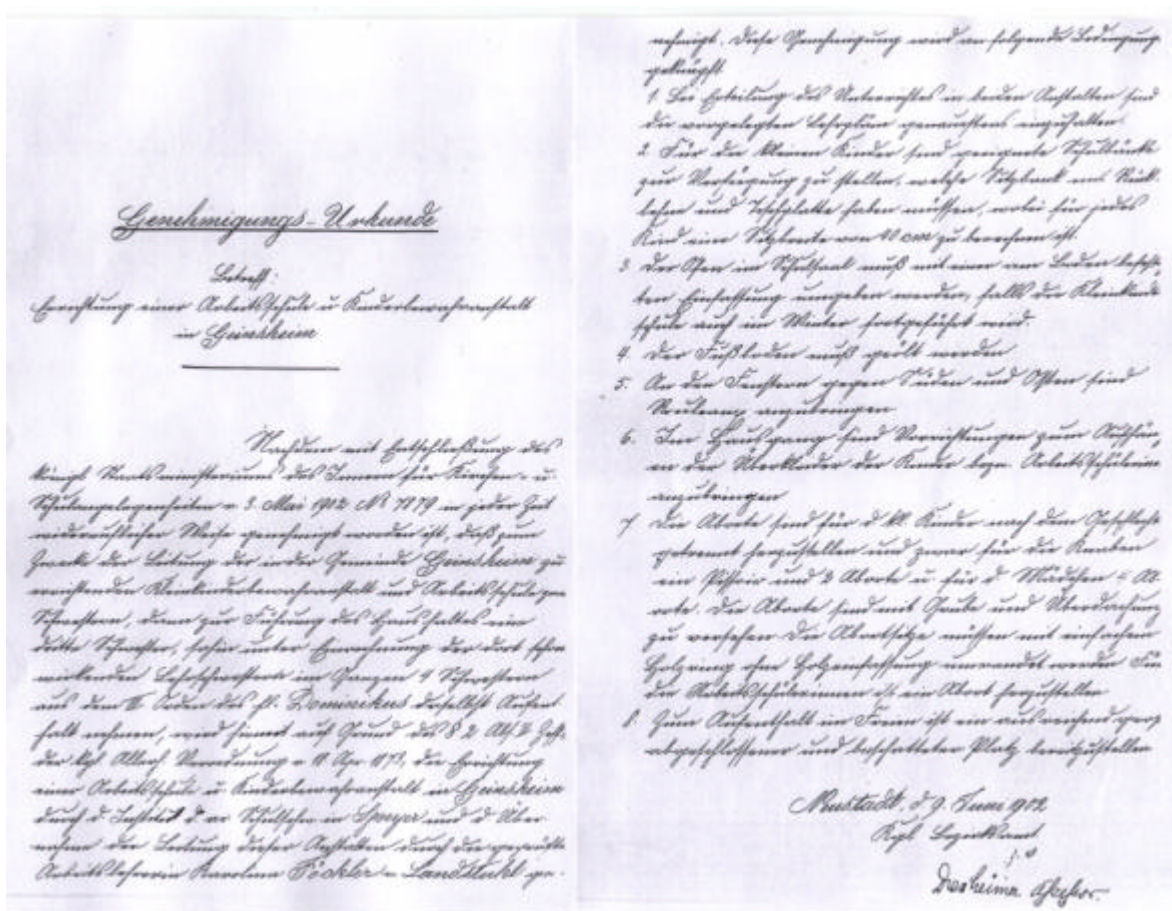 Genehmigungs-Urkunde
Betreff:
Errichtung einer Arbeitsschule u Kinderbewahranstalt
in Geinsheim
Nachdem mit Entschließung des
königl Staatsministeriums des Innern für Kirchen- u
Schulangelegenheiten v 3. Mai 1902 № 7879 in jeder Zeit
widerruflicher Weise genehmigt worden ist, daß zum
Zwecke der Leitung der in der Gemeinde Geinsheim zu
errichtenden Kleinkinderbewahranstalt und Arbeitsschule zwei
Schwestern, dann zur Führung des Haushaltes eine
dritte Schwester, sohin unter Einrechnung der dort schon
wirkenden Lehrschwestern im Ganzen 4 Schwestern
aus dem Orden des hl. Dominikus daselbst Aufent
halt nehmen, wird hiermit auf Grund des § 2 Abs. 2 Ziff.
der kgl Allerh Verordnung v Apr 1873, die Errichtung
einer Arbeitsschule u Kinderbewahranstalt in Geinsheim
durch d Institut d ar Schulschw in Speyer und d Über
nahme der Leitung dieser Anstalten durch die geprüfte
Arbeitslehrerin Karolina Föckler v Landstuhl ge-
nehmigt. Diese Genehmigung wird an folgende Bedingung
geknüpft
1. Bei Erteilung des Unterrichtes in beiden Anstalten sind
die vorgelegten Lehrpläne genauestens einzuhalten.
2 Für die kleinen Kinder sind geeignete Schulbänke
zur Verfügung zu stellen, welche Sitzbank mit Rück
lehne und Tischplatte haben müssen, wobei für jedes
Kind eine Sitzbreite von 40 cm zu berechnen ist.
3 Der Ofen im Schulsaal muß mit einer am Boden befestig
ten Einfassung umgeben werden, falls die Kleinkind
schule auch im Winter fortgeführt wird
4. Der Fußboden muß geölt werden
5. An den Fenstern gegen Süden und Osten sind
Rouleaux anzubringen
6. Im Hausgang sind Vorrichtungen zum Aufhän
en der Überkleider der Kinder bezw. Arbeitsschülerin
anzubringen
7 Die Aborte sind für d kl. Kinder nach dem Geschlecht
getrennt herzustellen und zwar für die Knaben
ein Pissoir und 2 Aborte u. für d Mädchen Ab
orte. Die Aborte sind mit Grube und Überdachung
zu versehen Die Abortsitze müssen mit einfachem
Holzring ohne Holzeinfassung umrandet werden Für
die Arbeitsschülerinnen ist ein Abort herzustellen
8. Zum Aufenthalt im Freien ist ein ausreichend groß
abgeschlossener und beschatteter Platz bereitzustellen
Neustadt, d 9. Juni 902
Kgl Bezirksamt